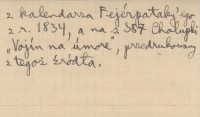 z kalendarza Fejérpataky'ego
z r. 1834, a na z 387 Chalupki
„Vojín na úmore", przedrukowany
z tegoż źródła.